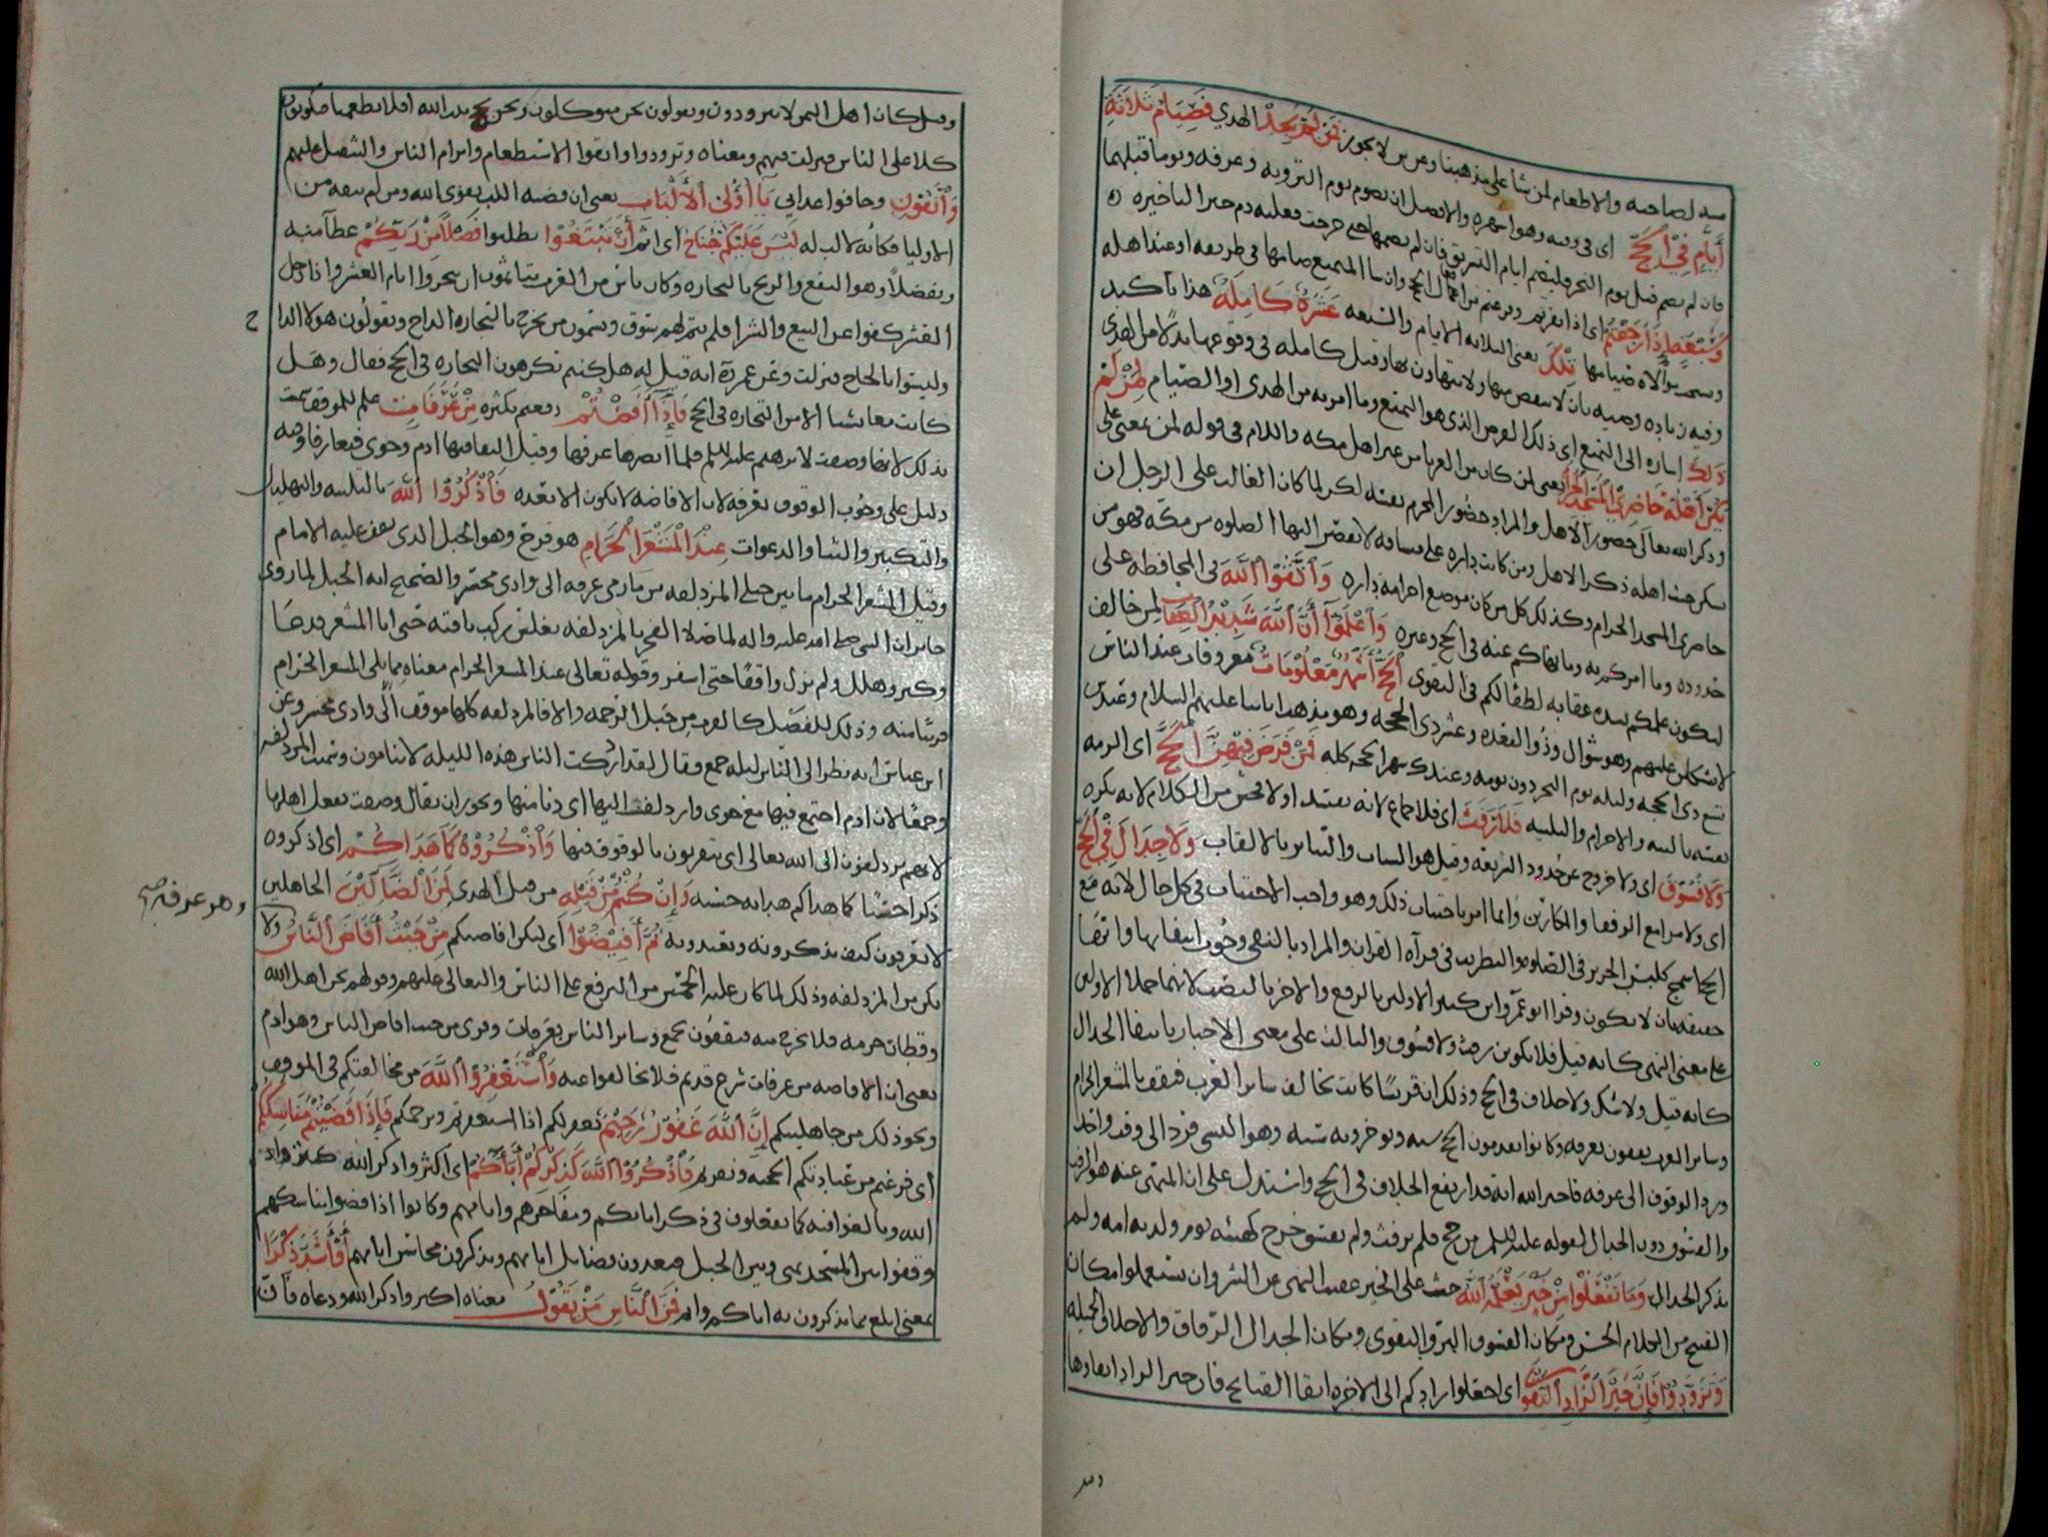 لصاحبه والاطعام لمن شا على مذهبنا وعن لا يجوز فمن لم يجد الهدي فصيام ثلاثة
أيام في الحج اى فى وقته وهو اشهره والافضل ان يصوم يوم التروية وعرفه ويوما قبلهما
فان لم يصم قبل يوم النحر فليصم ايام التشريق فان لم يصمها حتى خرجت فعليه دم
وسبعة إذا رجعتم اى اذا نفرتم وفرغتم من اعمال الحج وان شا المتمتع صامها فى طريقه او عند اهله
صيامها تلك يعنى الثلاثه الايام والسبعه عشرة كاملة هذا تأكيد
وفيه زياده وصيه بان لا ينقص منها ولا يتهاون بها وقيل كامله فى وقوعها بدلا من الهدى
ذلك اشاره الى التمتع اى ذلك الفرض الذى هو التمتع وما امر به من الهدى او الصيام لمن لم
يكن أهله حاضري المسجد الحرام يعنى لمن كان من غير اهل مكه واللام فى قوله لمن بمعنى على
وذكر الله تعالى حضور الاهل والمراد حضور المحرم بنفسه لكن لما كان الغالب على الرجل ان
يسكن حيث اهله ذكر الاهل ومن كانت داره على مسافه لا تقصر اليها الصلوه من مكه فهو من
حاضرى المسجد الحرام وكذلك كل من كان موضع احرامه داره واتقوا الله فى المحافظه على
حدوده وما امركم به وما نهاكم عنه فى الحج وغيره واعلموا أن الله شديد العقاب لمن خالف
ليكون علمكم بشده عقابه لطفا لكم فى التقوى الحج أشهر معلومات معروفات عند الناس
لا يشكلن عليهم وهو شوال وذو القعده وعشر ذى الحجه وهو مذهب ابائنا عليهم السلام وعند
تسع ذى الحجه وليله يوم النحر دون يومه وعند شهر الحجه كله فمن فرض فيهن الحج اى الزمه
نفسه بالنيه والاحرام والتلبيه فلا رفث اى فلا جماع لانه يفسد او لا فحش من الكلام لانه يكره
ولا فسوق اى ولا خروج عن حدود الشريعه وقيل هو السباب والتنابز بالالقاب ولا جدال في الحج
اى ولا مرا مع الرفقا والمكارين وانما امر باجتناب ذلك وهو واجب الاجتناب فى كل حال لانه مع
الحج اسمج كلبس الحرير فى الصلوه والتطريب فى قرآه القران والمراد بالنفى وجوب انتفايها وانها
حقيقه بان لا تكون وقرا ابو عمرو وابن كثير الاولين بالرفع والاخر بالنصب لانهما حملا الاولين
على معنى النهى كانه قيل فلا يكونن رفث ولا فسوق والثالث على معنى الاخبار بانتفا الجدال
كانه قيل ولا شك ولا خلاف فى الحج وذلك ان قريشا كانت تخالف سائر العرب فتقف بالمشعر الحرام
وسائر العرب يقفون بعرفه وكانوا يقدمون الحج سنه ويوخرونه سنه وهو النسى فرد الى وقت واحد
ورد الوقوف الى عرفه فاخبر الله انه قد ارتفع الخلاف فى الحج واستدل على ان المنهى عنه هو الرفث
والفسوق دون الجدال لقوله عليه السلم من حج فلم يرفث ولم يفسق خرج كهيئه يوم ولدته امه ولم
يذكر الجدال وما تفعلوا من خير يعلمه الله حث على الخير عقيب النهى عن الشر وان يستعملوا مكان
القبيح من الكلام الحسن ومكان الفسوق البر والتقوى ومكان الجدال الوفاق والاخلاق الجميله
وتزودوا فإن خير الزاد التقوى اى اجعلوا زادكم الى الاخره اتقا القبايح فان خير الزاد اتقاوها
وقيل كان اهل اليمن لا يتزودون ويقولون نحن متوكلون ونحن نحج بيت الله افلا يطعمنا فيكونون
كلا على الناس فنزلت فيهم ومعناه وتزودوا واتقوا الاستطعام وابرام الناس والتثقيل عليهم
واتقون وخافوا عذابى يا أولي الألباب يعنى ان قضيه اللب تقوى الله ومن لم يتقه من
الاوليا فكانه لا لب له ليس عليكم جناح اى اثم أن تبتغوا تطلبوا فضلا من ربكم عطآ منه
وتفضلا وهو النفع والربح بالتجاره وكان ناس من العرب يتاثمون ان يتجروا ايام العشر واذا دخل
العشر كفوا عن البيع والشرا فلم يقم لهم سوق ويسمون من يخرج بالتجاره الداج ويقولون هولا الداج
وليسوا بالحاج فنزلت وعن عمر انه قيل له هل كنتم تكرهون التجاره فى الحج فقال وهل
كانت معايشنا الا من التجاره فى الحج فإذا أفضتم دفعتم بكثره من عرفات علم للموقف سميت
بذلك لانها وصفت لابرهيم عليه السلم فلما ابصرها عرفها وقيل التقا فيها ادم وحوى فتعارفا وفيه
دليل على وجوب الوقوف بعرفه لان الافاضه لا تكون الا بعده فاذكروا الله بالتلبيه والتهليل
والتكبير والثنا والدعوات عند المشعر الحرام هو قزح وهو الجبل الذى يقف عليه الامام
وقيل المشعر الحرام ما بين جبلى المزدلفه من مازمى عرفه الى وادى محسر والصحيح انه الجبل لما روى
جابر ان النبى صلى الله عليه واله لما صلا الفجر بالمزدلفه بغلس ركب ناقته حتى اتا المشعر فدعا
وكبر وهلل ولم يزل واقفا حتى اسفر وقوله تعالى عند المشعر الحرام معناه مما يلى المشعر الحرام
قريبا منه وذلك للفضل كالقرب من جبل الرحمه والا فالمزدلفه كلها موقف الا وادى محسر وعن
ابن عباس انه نظر الى الناس ليله جمع وقال لقد ادركت الناس هذه الليله لا ينامون وسميت المزدلفه
وجمعا لان ادم اجتمع فيها مع حوى وازدلف اليها اى دنا منها ويجوز ان يقال وصفت بفعل اهلها
لانهم يزدلفون الى الله تعالى اى يتقربون بالوقوف فيها واذكروه كما هداكم اى اذكروه
ذكرا حسنا كما هداكم هدايه حسنه وإن كنتم من قبله من قبل الهدى لمن الضالين الجاهلين
لا تعرفون كيف تذكرونه وتعبدونه ثم أفيضوا اى لتكن افاضتكم من حيث أفاض الناس ولا
تكن من المزدلفه وذلك لما كان عليه الحمس من الترفع على الناس والتعالى عليهم وقولهم نحن اهل الله
وقطان حرمه فلا نخرج منه فيقفون بجمع وسائر الناس بعرفات وقرى من حيث افاض الناس وهو ادم
يعنى ان الافاضه من عرفات شرع قديم فلا تخالفوا عنه واستغفروا الله من مخالفتكم فى الموقف
ونحو ذلك من جاهليتكم إن الله غفور رحيم يغفر لكم اذا استغفرتم ويرحمكم فإذا قضيتم مناسككم
اى فرغتم من عباداتكم الحجيه ونفرتم فاذكروا الله كذكركم آباءكم اى اكثروا ذكر الله
الله وبالغوا فيه كما تفعلون فى ذكر ابائكم ومفاخرهم وايامهم وكانوا اذا قضوا مناسكهم
وقفوا بين المسجد بمنى وبين الجبل فيعددون فضايل ابائهم ويذكرون محاسن ايامهم أو أشد ذكرا
بمعنى ابلغ مما تذكرون به اباكم فمن الناس من يقول معناه اكثروا ذكر الله ودعاه فان
وهو عرفه